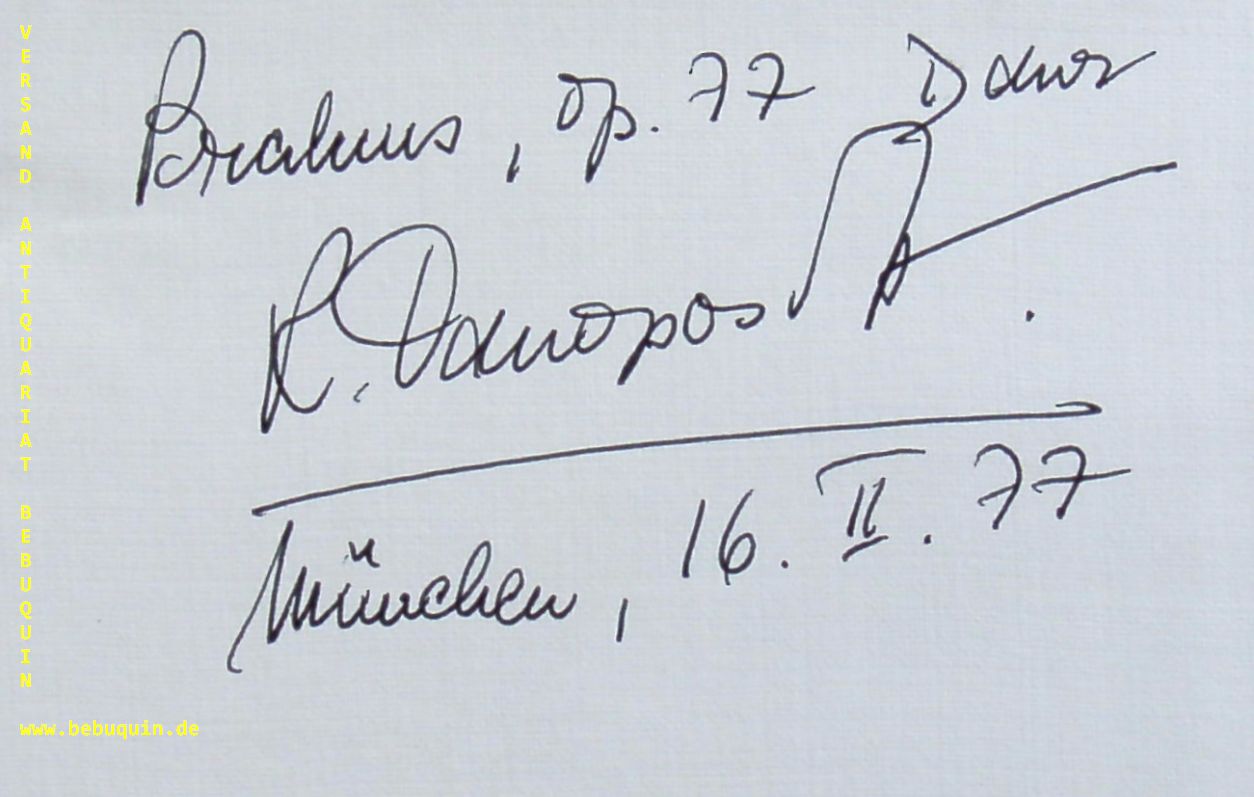 VERSAND ANTIQUARIAT BEBUQUIN
Brahms, op. 77 D dur
München, 16. II. 77
www.bebuquin.de